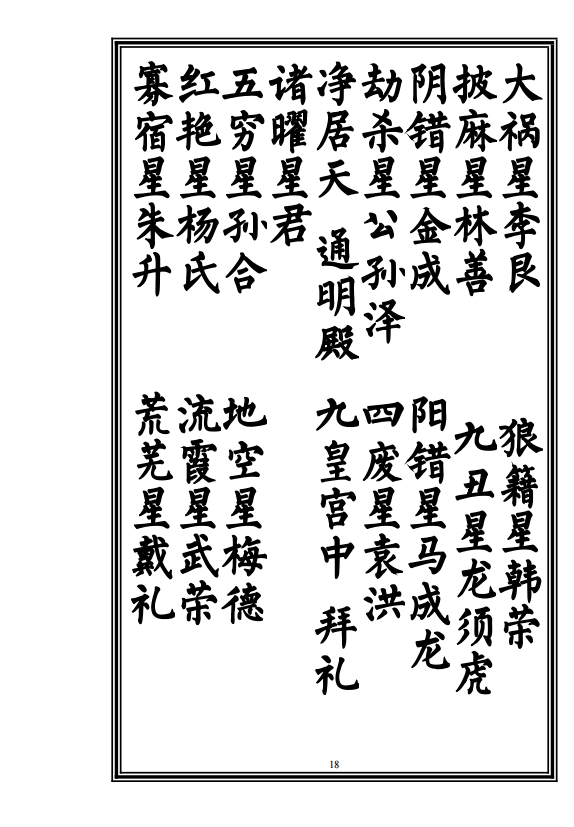 大祸星李艮 狼籍星韩荣
披麻星林善 九丑星龙须虎
阴错星金成 阳错星马成龙
劫杀星公孙泽 四废星袁洪
净居天 通明殿 九皇宫中 拜礼
诸曜星君
五穷星孙合 地空星梅德
红艳星杨氏 流霞星武荣
寡宿星朱升 荒芜星戴礼
18